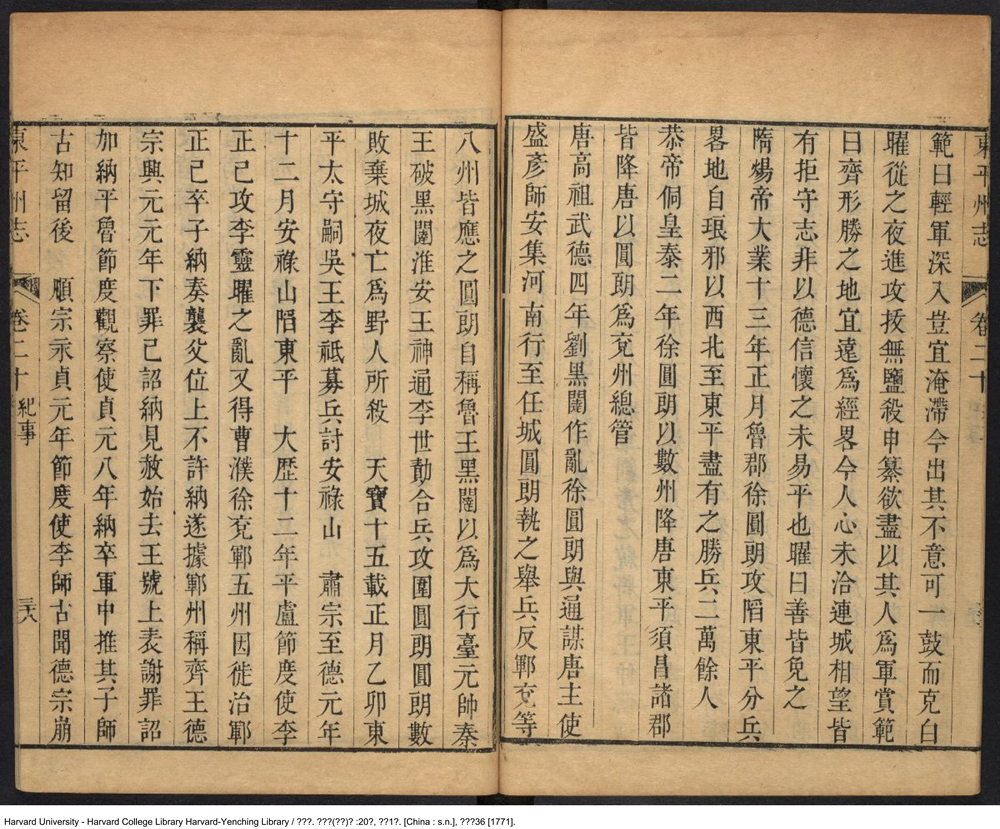 東平州志 卷二十
範曰輕軍深入豈宜淹滯今出其不意可一鼓而克白
曜從之夜進攻拔無鹽殺申纂欲盡以其人爲軍賞範
曰齊形勝之地宜遠爲經畧今人心未洽連城相望皆
有拒守志非以德信懷之未易平也曜曰善皆免之
隋煬帝大業十三年正月魯郡徐圓朗攻䧟東平分兵
畧地自琅邪以西北至東平盡有之勝兵二萬餘人
恭帝侗皇泰二年徐圓朗以數州降唐東平須昌諸郡
皆降唐以圓朗爲兗州總管
唐高祖武德四年劉黑闥作亂徐圓朗與通謀唐主使
盛彥師安集河南行至任城圓朗執之舉兵反鄆兗等
八州皆應之圓朗自稱魯王黑闥以爲大行臺元帥秦
王破黑闥淮安王神通李世勣合兵攻圍圓朗圓朗數
敗棄城夜亡爲野人所殺 天寶十五載正月乙卯東
平太守嗣吳王李祗募兵討安祿山 肅宗至德元年
十二月安祿山䧟東平 大歷十二年平盧節度使李
正己攻李靈曜之亂又得曹濮徐兗鄆五州因徙治鄆
正己卒子納奏襲父位上不許納遂據鄆州稱齊王德
宗興元元年下罪己詔納見赦始去王號上表謝罪詔
加納平魯節度觀察使貞元八年納卒軍中推其子師
古知留後 順宗永貞元年節度使李師古聞德宗崩
東平州志 卷二十 紀事
Harvard University - Harvard College Library Harvard-Yenching Library / ???. ???(??)? :20?, ??1?. [China : s.n.], ???36 [1771].